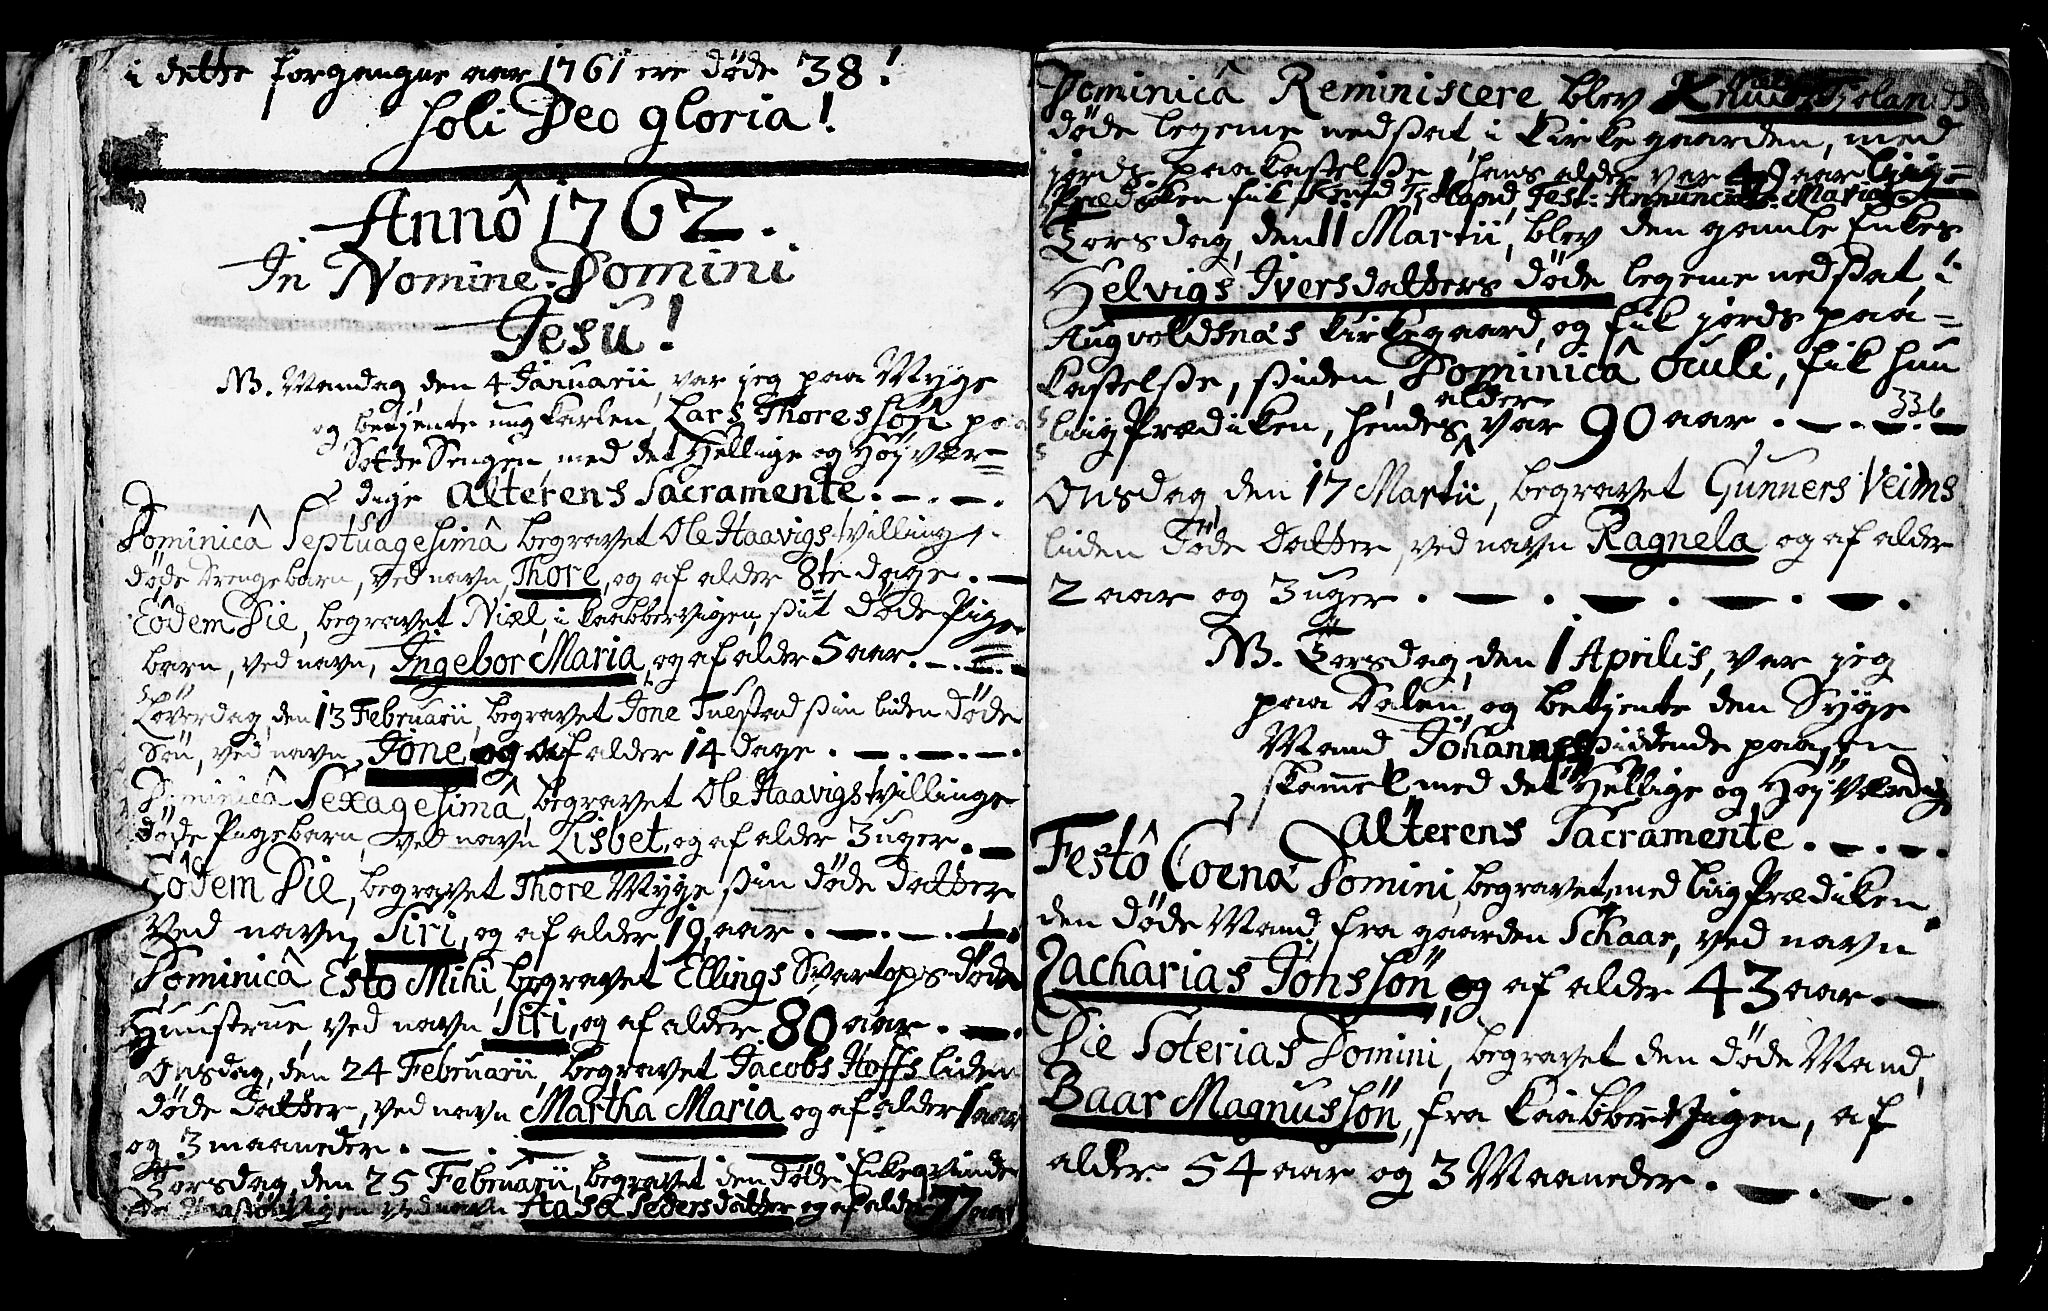 i dette forgangne aar 1761 ere døde 38!
Soli Deo gloria!
Annô 1762.
In Nomine Domini
Jesu!
NB. Mandag, den 4 Januarii, var jeg paa Myge
og betjente ungkarlen, Lars Thoressøn paa
Sotte Sengen, med det Hellige og Høyvær=
dige Alterens Sacramente.
Dominicâ Septuagesimâ begravet Ole Haavigs tvillinge
døde Drengebarn, ved navn, Thore, og af alder 8te dage.
Eôdem Die, begravet Niel, i Kaabbervigen, sit døde Pige
barn, ved navn, Ingebor Maria, og af alder 5 aar.
Løverdag, den 13 Februarii, begravet Jone Tuestad sin liden døde
Søn, ved navn, Jone, og af alder 14 dage.
Dominicâ Sexagesimâ, begravet Ole Haavigs tvillinge
døde Pigebarn, ved navn Lisbet, og af alder 3 uger.
Eôdem Die, begravet Thore Myge sin døde datter
ved navn, Siri, og af alder 19 aar.
Dominicâ Esto Mihi, begravet Ellings Svartops døde
Huustrue, ved navn Siri, og af alder 80 aar.
Onsdag, den 24 Februarii, begravet Jacobs Hoffs liden
døde datter, ved navn Martha Maria og af alder 1 aar
og 3 maaneder.
Torsdag, den 25 Februarii, begravet den døde Enkeqvinde
ved navn Aasa Pedersdatter og af alder 77 aar
Dominicâ Reminiscere blev Knud
døde legeme nedsat, i Kirkegaarden, med
jords paakastelse, hans alder var 49 aar Liig=
Prædiken fik Fest: Annunciat: Mariæ
Torsdag, den 11 Martii, blev den gamle Enkes
Helvigs Iversdatters døde legeme nedsat, i
Augvoldsnæs Kirkegaard, og fik jords paa=
kastelse, siden Dominicâ Oculi, fik hun
LiigPrædiken, hendes alder var 90 aar. 336
Onsdag, den 17 Martii, begravet Gunners Veims
liden døde datter, ved navn Ragnela og af alder
2 aar og 3 uger.
NB. Torsdag, den 1 Aprilis, var jeg
paa Dalen, og betjente den Syge
Mand Johannes siddende paa en
skammel med det Hellige og Høyværdige
Alterens Sacramente.
Festô Coena Domini, begravet, med LiigPrædiken
den døde Mand, fra gaarden Schaar, ved navn
Zacharias Jonssøn og af alder 43 aar.
Die Soterias Domini, begravet den døde Mand,
Baar Magnussøn, fra Kaabbervigen, af
alder 54 aar og 3 Maaneder.